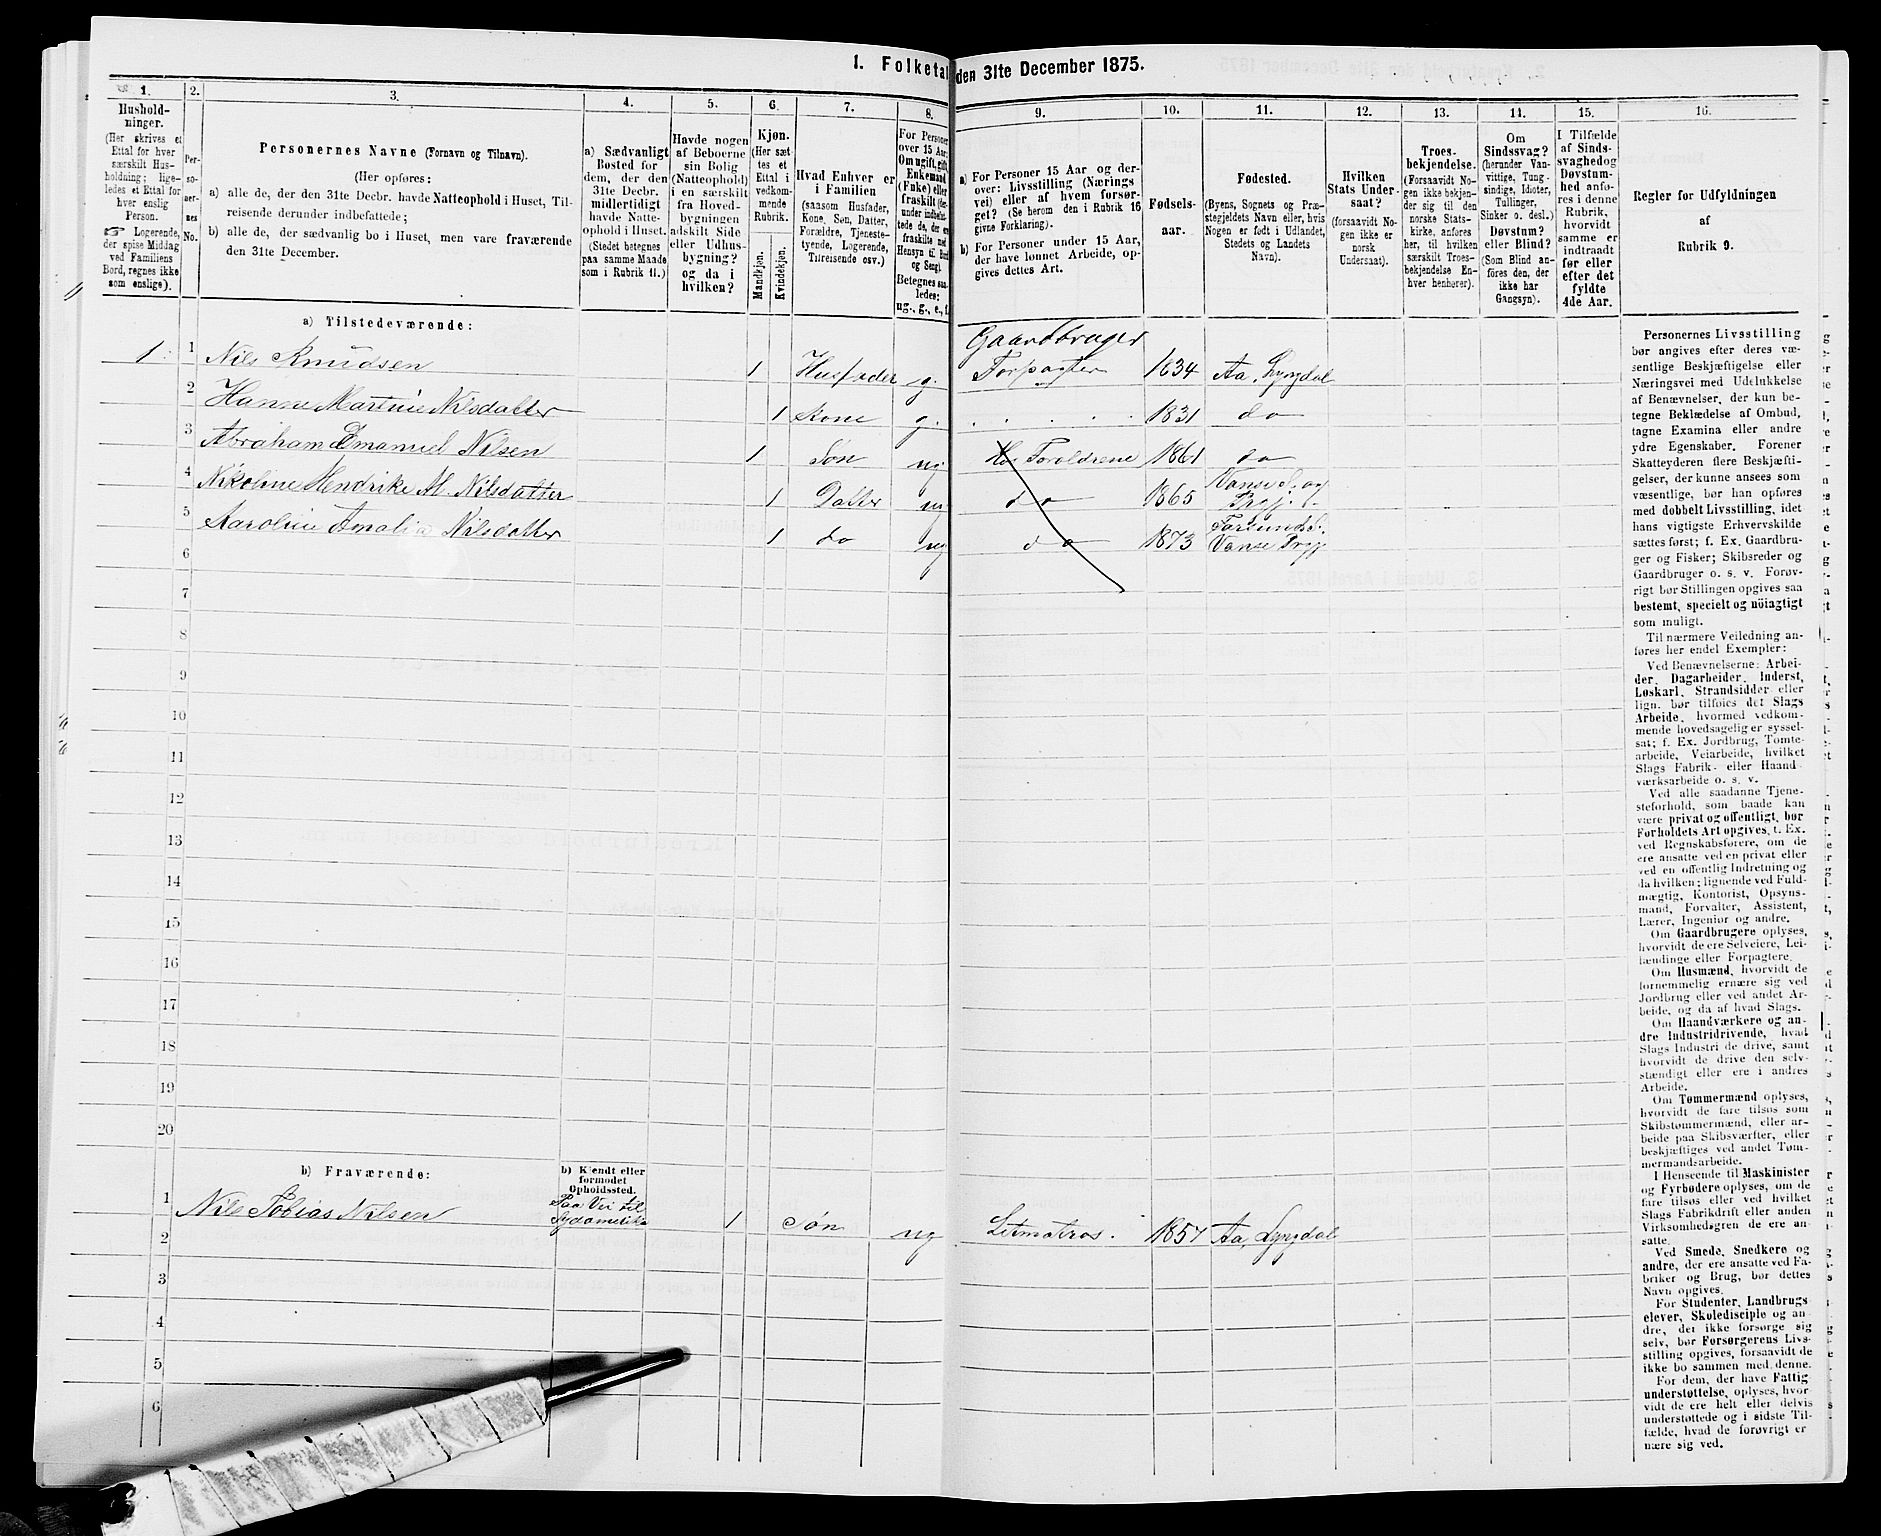 1. Folketal den 31te December 1875.
1.
Hushold-
ninger.
(Her skrives et
Ettal for hver
særskilt Hus-
holdning; lige-
ledes et Ettal for
hver enslig
Person.
☞ Logerende,
der spise Middag
ved Familiens
Bord, regnes ikke
som enslige).
2.
Per-
so-
ner-
nes
No.
3.
Personernes Navne (Fornavn og Tilnavn).
(Her opføres:
a) alle de, der den 31te Decbr. havde Natteophold i Huset, Til-
reisende derunder indbefattede;
b) alle de, der sædvanlig bo i Huset, men vare fraværende
den 31te December.
4.
a) Sædvanligt
Bosted for
dem, der den
31te Decbr.
midlertidigt
havde Natte-
ophold i Huset.
(Stedet betegnes
paa samme Maade
som i Rubrik 11.)
5.
Havde nogen
af Beboerne
sin Bolig
(Natteophold)
i en særskilt
fra Hoved-
bygningen
adskilt Side
eller Udhus-
bygning?
og da i
hvilken?
6.
Kjøn.
(Her sæt-
tes et
Ettal i
vedkom-
mende
Rubrik.
Mandkjøn.
Kvindekjøn.
7.
Hvad Enhver er
i Familien
(saasom Husfader,
Kone, Søn, Datter,
Forældre, Tjeneste-
tyende, Logerende,
Tilreisende osv.)
8.
For Personer
over 15 Aar:
Om ugift, gift,
Enkemand
(Enke) eller
fraskilt
Betegnes saa-
ledes:
ug., g., e., f.
9.
a) For Personer 15 Aar og der-
over: Livsstilling (Nærings
vei) eller af hvem forsør-
get? (Se herom den i Rubrik 16
givne Forklaring).
b) For Personer under 15 Aar,
der have lønnet Arbeide, op-
gives dettes Art.
10.
Fødsels-
aar.
11.
Fødested.
(Byens, Sognets og Præ-
stegjeldets Navn eller, hvis
Nogen er født i Udlandet,
Stedets og Landets
Navn).
12.
Hvilken
Stats Under-
saat?
(forsaavidt No-
gen ikke er
norsk
Undersaat).
13.
Troes-
bekjendelse.
(Forsaavidt No-
gen ikke bekjen-
der sig til den
norske Stats-
kirke, anføres
her, til hvilken
særskilt Troes-
bekjendelse En-
hver henhører).
14.
Om
Sindssvag?
(herunder Van-
vittige, Tung-
sindige, Idioter,
Tullinger,
Sinker o. desl.)
Døvstum?
eller Blind?
(Som Blind an-
føres den, der
ikke har
Gangsyn).
15.
I Tilfælde
af Sinds-
svaghed og
Døvstum-
hed anfø-
res i denne
Rubrik,
hvorvidt
samme er
indtraadt
før eller
efter det
fyldte
4de Aar.
16.
Regler for Udfyldningen
af
Rubrik 9.
a) Tilstedeværende:
Gaardbruger
1 1 Nils Knudsen 1 Husfader g. Forpagter 1834 Aa, Lyngdal
2 Hanne Martine Nilsdatter 1 Kone g. 1831 do
3 Abraham Emanuel Nilsen 1 Søn ug Hos Forældrene 1861 do
4 Nikoline Hendrike M. Nilsdatter 1 Datter ug do 1865 Vanse S. og Prgj.
5 Karoline Amalia Nilsdatter 1 do ug do 1873 Farsund S. Vanse Prgj
6
7
8
9
10
11
12
13
14
15
16
17
18
19
20
b) Fraværende:
b) Kjendt eller
formodet
Opholdssted.
1 Nils Tobias Nilsen Paa Vei til Sydamerika 1 Søn ug Letmatros. 1857 Aa, Lyngdal
2
3
4
5
6
Personernes Livsstilling
bør angives efter deres væ-
sentlige Beskjæftigelse eller
Næringsvei med Udelukkelse
af Benævnelser, der kun be-
tegne Beklædelse af Ombud,
tagne Examina eller andre
ydre Egenskaber. Forener
Skatteyderen flere Beskjæfti-
gelser, der kunne ansees som
væsentlige, bør han opføres
med dobbelt Livsstilling, idet
hans vigtigste Erhvervskilde
sættes først; f. Ex. Gaardbru-
ger og Fisker; Skibsreder og
Gaardbruger o. s. v. Forøv-
rigt bør Stillingen opgives saa
bestemt, specielt og nöiagtigt
som muligt.
Til nærmere Veiledning an-
føres her endel Exempler:
Ved Benævnelserne: Arbei-
der, Dagarbeider, Inderst,
Løskarl, Strandsidder eller
lign. bør tilføies det Slags
Arbeide, hvormed vedkom-
mende hovedsagelig er syssel-
sat; f. Ex. Jordbrug, Tømte-
arbeide, Veiarbeide, hvilket
Slags Fabrik- eller Haand-
værksarbeide o. s. v.
Ved alle saadanne Tjene-
steforhold, som baade kan
være privat og offentligt, bør
Forholdets Art opgives, t. Ex.
ved Regnskabsførere, om de
ere ansatte ved en privat eller
ved en offentlig Indretning og
da hvilken; lignende ved Fuld-
mægtig, Kontorist, Opsyns-
mand, Forvalter, Assistent,
Lærer, Ingeniør og andre.
Om Gaardbrugere oplyses,
hvorvidt de ere Selveiere, Lei-
lændinge eller Forpagtere.
Om Husmænd, hvorvidt de
fornemmelig ernære sig ved
Jordbrug eller ved andet Ar-
beide, og da af hvad Slags.
Om Haandværkere og an-
dre Industridrivende, hvad
Slags Industri de drive, samt
hvorvidt de drive den selv-
stændigt eller ere i andres
Arbeide.
Om Tømmermænd oplyses,
hvorvidt de fare tilsøs som
Skibstømmermænd, eller ar-
beide paa Skibsværfter, eller
beskjæftiges ved andet Tøm-
mermandsarbeide.
I Henseende til Maskinister
og Fyrbødere oplyses, om de
fare tilsøs eller ved hvilket
Slags Fabrikdrift eller anden
Virksomhedsgren de ere an-
satte.
Ved Smede, Snedkere og
andre, der ere ansatte ved Fa-
briker og Brug, bør dettes
Navn opgives.
For Studenter, Landbrugs
elever, Skoledisciple og an-
dre, der ikke forsørge sig
selv, bør Forsørgerens Livs-
stilling opgives, forsaavidt de
ikke bo sammen med denne.
For dem, der have Fattig
understøttelse, oplyses, hvor-
vidt de ere helt eller delvis
understøttede og i sidste Til-
fælde, hvad de forøvrigt er
nære sig ved.